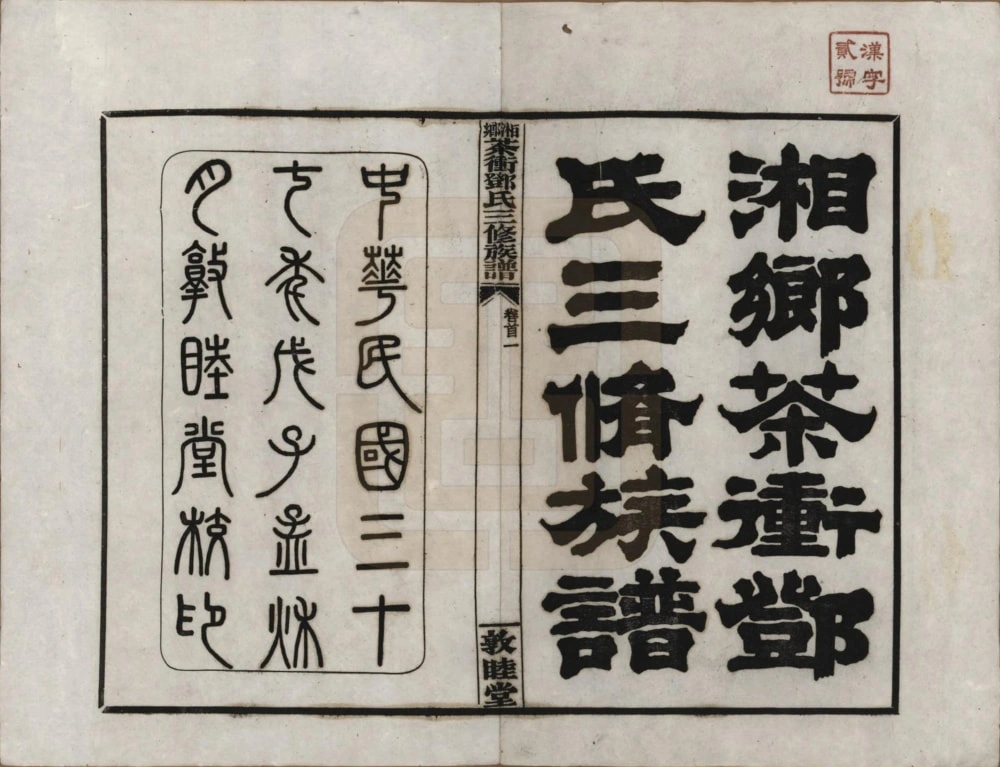 漢字
貳號
湘鄉茶衝鄧
氏三脩族譜
湘鄉茶衝鄧氏三修族譜
卷首一
敦睦堂
中華民國三十
七年戊子孟秋
月敦睦堂校印